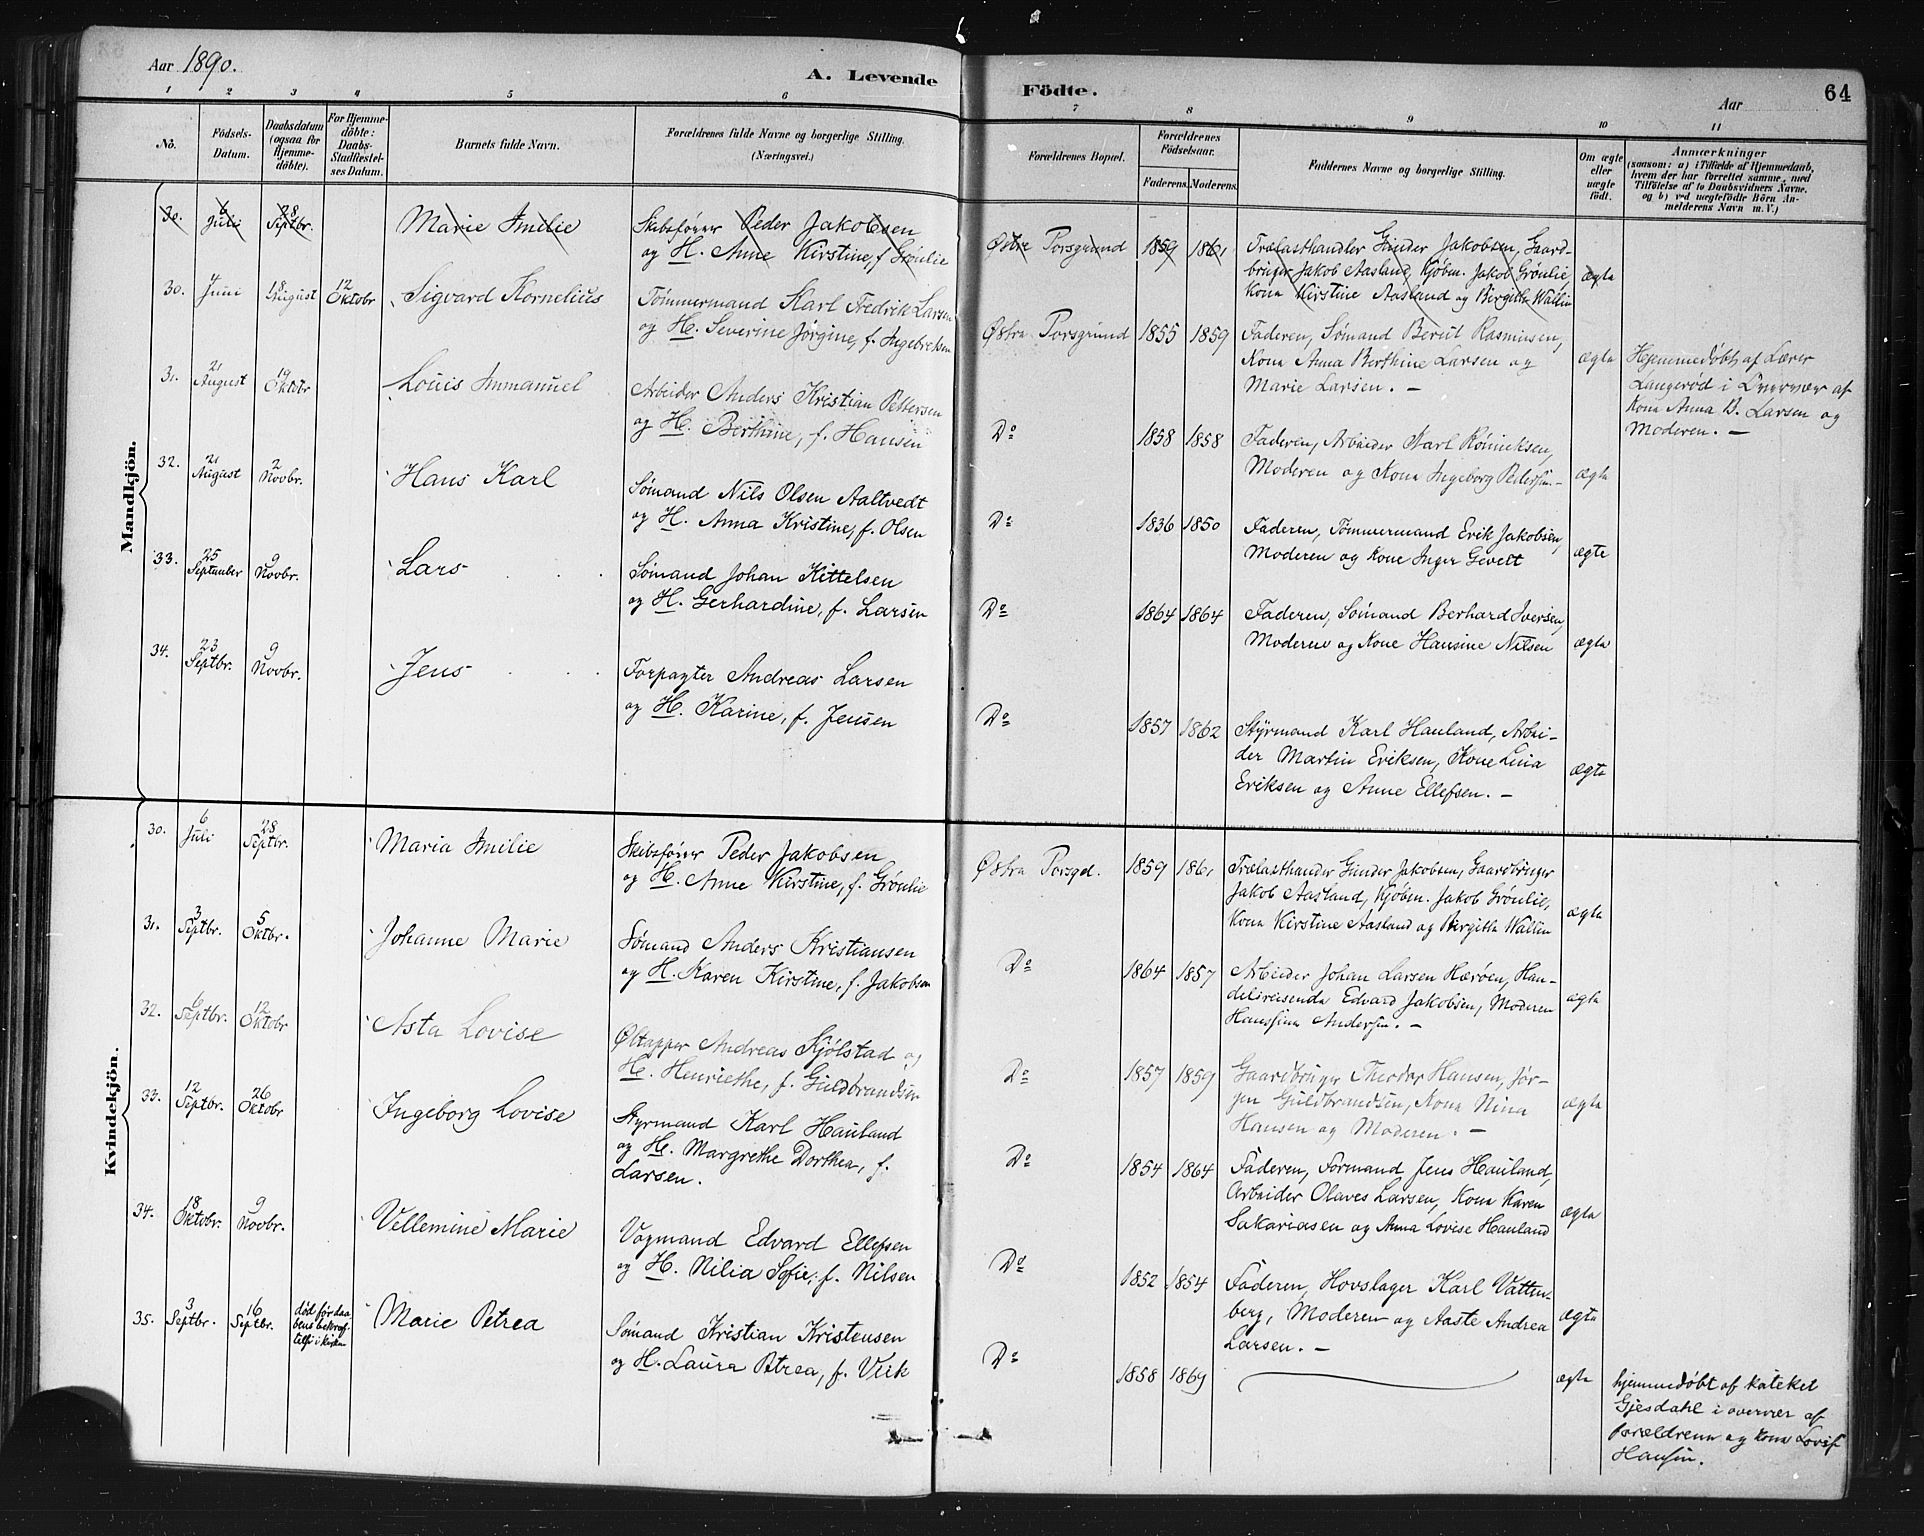 Aar 1890.
A. Levende
Födte.
Aar
64
1 2 3 4 5 6 7 8 9 10 11
No.
Födsels-
Datum.
Daabsdatum
(ogsaa for
Hjemme-
döbte).
For Hjemme-
döbte:
Daabs-
Stadfestel-
ses Datum.
Barnets fulde Navn.
Forældrenes fulde Navne og borgerlige Stilling.
(Næringsvei.)
Forældrenes Bopæl.
Forældrenes
Födselsaar.
Faderens. Moderens.
Faddernes Navne og borgerlige Stilling.
Om ægte
eller
uægte
födt.
Anmærkninger
(saasom: a) i Tilfælde af Hjemmedaab,
hvem der har forrettet samme, med
Tilföielse af to Daabsvidners Navne.
og b) ved uægtefödte Börn An-
melderens Navn m.V.)
Mandkjön.
30. 6 Juli 28 Septbr. Marie Amilie
Skibsfører Peder Jakobsen
og H. Anne Kirstine, f. Grønlie
Østre Porsgrund 1859 1861
Trælasthandler Gunder Jakobsen, Gaard-
bruger Jakob Aasland, Kjøbm. Jakob Grønlie,
Kona Kirstine Aasland og Birgitte Wallin
ægta
30. Juni 18 August 12 Oktobr Sigvard Kornelius
Tømmermand Karl Fredrik Larsen
og H. Severine Jørgine, f. Ingebretsen
Østra Porsgrund 1855 1859
Faderen, Sømand Berut Rasmusen,
Kona Anna Berthine Larsen og
Marie Larsen. —
ægta
Hjemmedøbt af Lærer
Langerød i Overvær af
Kona Anna B. Larsen og
Moderen. —
31. 21 August 19 Oktobr Louis Immanuel
Arbeider Anders Kristian Pettersen
og H. Berthine, f. Hansen
Do 1858 1858
Faderen, Arbeider Karl Rønieksen,
Moderen og Kona Ingeborg Pedersen. —
ægta
32. 21 August 2 Novbr. Hans Karl
Sømand Nils Olsen Aaltvedt
og H. Anna Kristine, f. Olsen
Do 1836 1850
Faderen, Tømmermand Erik Jakobsen,
Moderen og Kone Inger Gevelt
ægte
33. 25 September 9 Novbr. Lars
Sømand Johan Kittelsen
og H. Gerhardine, f. Larsen
Do 1864 1864
Faderen, Sømand Berhard Iversen,
Moderen og Kone Hansine Nilsen
ægta
34. 23 Septbr. 9 Novbr. Jens
Forpagter Andreas Larsen
og H. Karine, f. Jensen
Do 1857 1862
Styrmand Karl Hauland, Arbei-
der Martin Eriksen, Kone Lina
Eriksen og Anne Ellefsen. —
ægta
Kvindekjön.
30. 6 Juli 28 Septbr. Maria Amilie
Skibsfører Peder Jakobsen
og H. Anne Kirstine, f. Grønlie
Østra Porsgd. 1859 1861
Trælasthander Gunder Jakobsen, Gaardbruger
Jakob Aasland, Kjøbm. Jakob Grønlie,
Kona Kirstine Aasland og Birgitta Wallin
ægta
31. 3 Septbr. 5 Oktbr. Johanne Marie
Sømand Anders Kristiansen
og H. Karen Kirstine, f. Jakobsen
Do 1864 1857
Arbeider Johan Larsen Herøen, Han-
delsreisende Edvard Jakobsen, Moderen
Hansina Andersen. —
ægta
32. 6 Septbr. 12 Oktobr Asta Lovise
Øltapper Andreas Kjølstad og
H. Henriethe, f. Guldbrandsen
Do 1857 1859
Gaardbruger Theodor Hansen, Jør-
gen Guldbrandsen, Kona Nina
Hansen og Moderen. —
ægta
33. 12 Septbr. 26 Oktobr Ingeborg Lovise
Styrmand Karl Hauland
og H. Margrethe Dorthea, f.
Larsen.
Do 1854 1864
Faderen, Formand Jens Hauland,
Arbeider Olaves Larsen, Kona Karen
Sakariasen og Anna Lovise Hauland
ægta
34. 18 Oktobr. 9 Novbr. Vellemine Marie
Vogmand Edvard Ellefsen
og H. Nilia Sofie, f. Nilsen
Do 1852 1854
Faderen, Hovslager Karl Vatten-
berg, Moderen og Aaste Andrea
Larsen. —
ægta
35. 3 Septbr. 16 Septbr. død før daa
bens bekræf
telse i kirken Marie Petrea
Sømand Kristian Kristensen
og H. Laura Petrea, f. Viik
Do 1858 1869
ægta
hjemmedøbt af kateket
Gjesdahl i overvær af
forældrene og kona Lovise
Hansen.